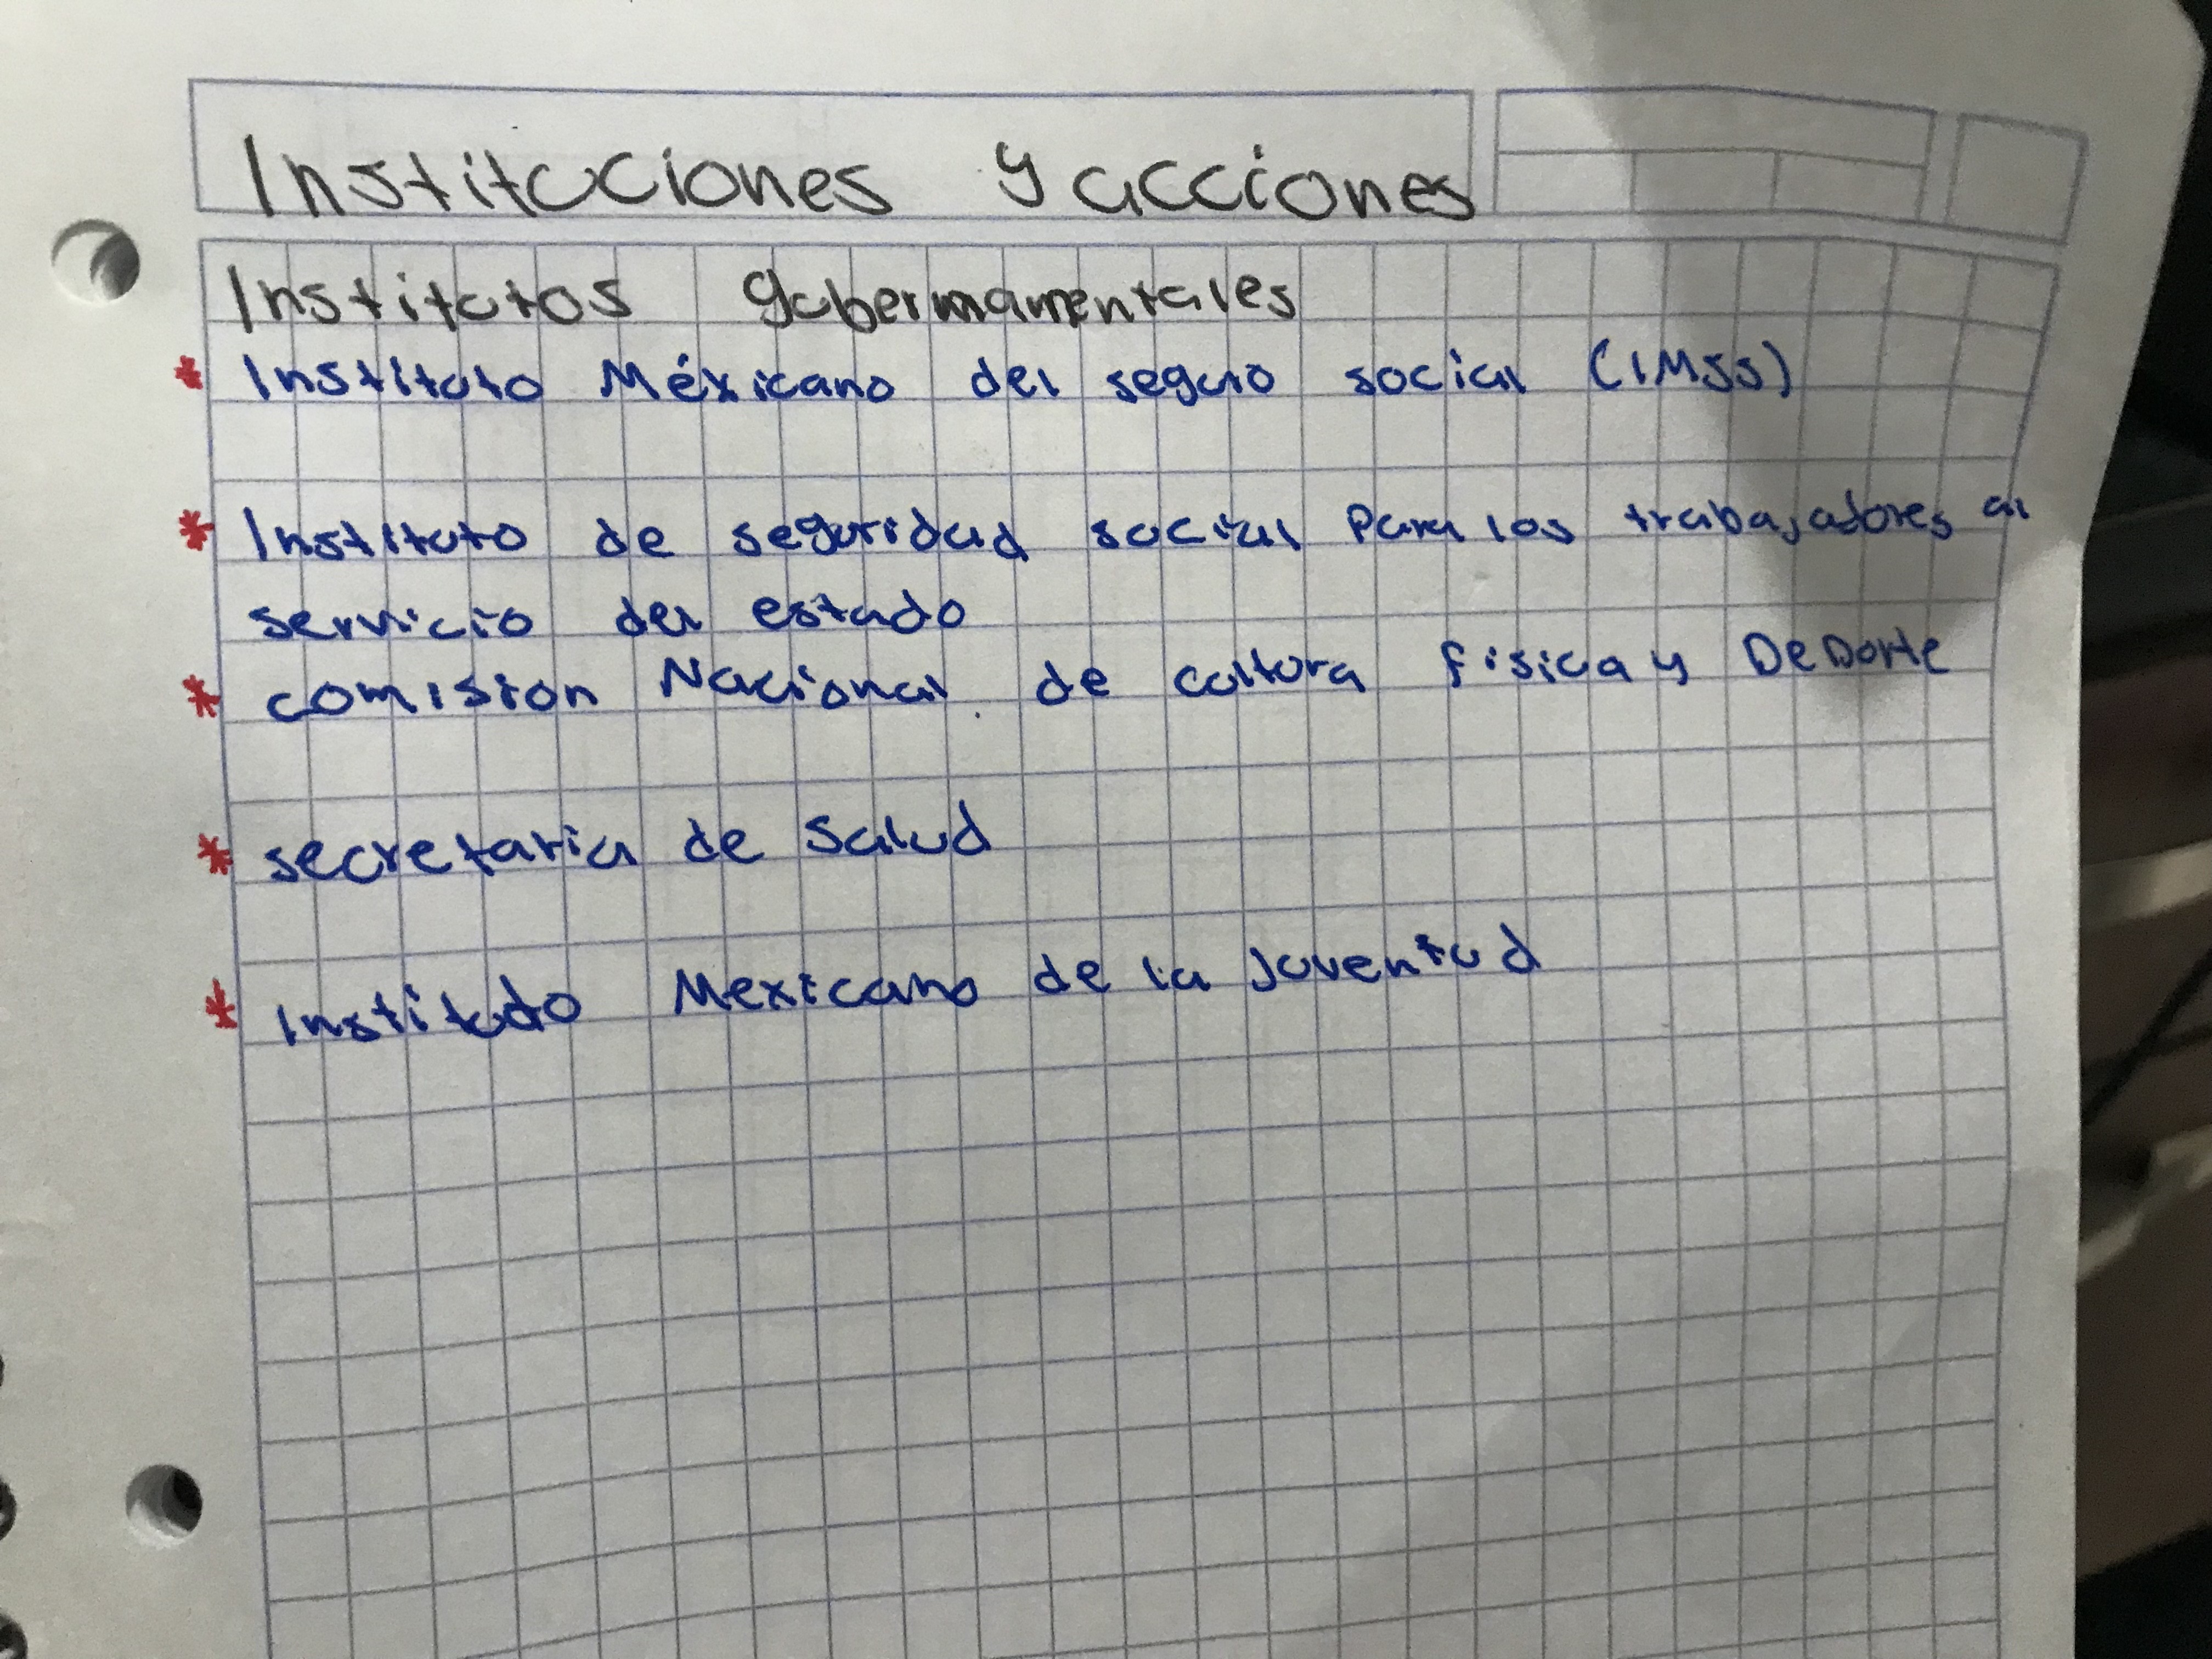 Instituciones y acciones
Institutos gubermamentales
* Instituto Méxicano del seguro social (IMSS)
* Instituto de seguridad social Para los trabajadores al
servicio del estado
* comision Nacional de cultura fisica y Deporte
* secretaria de Salud
* Institudo Mexicano de la Juventud